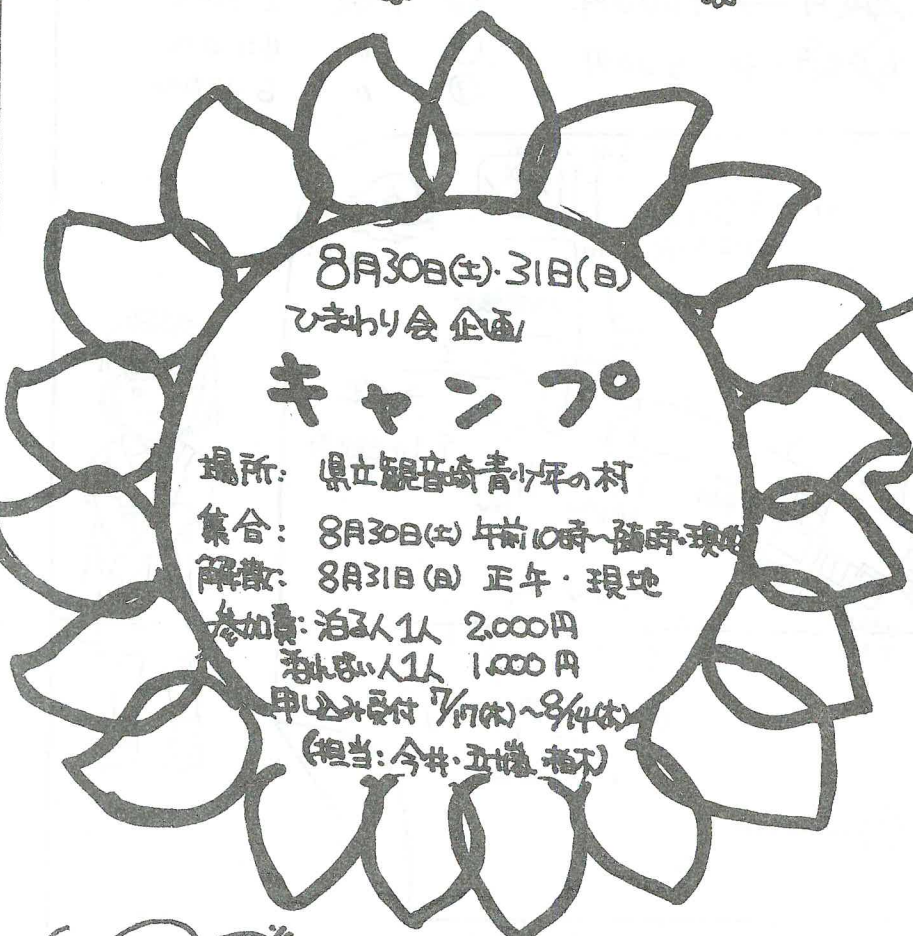 8月30日(土)・31日(日)
ひまわり会 企画
キャンプ
場所: 県立観音崎青少年の村
集合: 8月30日(土) 午前10時〜随時・現地
解散: 8月31日(日) 正午・現地
参加費: 泊る人1人 2,000円
泊れない人1人 1,000円
申し込み受付 7/17(木)〜8/14(木)
(担当: 今井・五十嵐・植木)